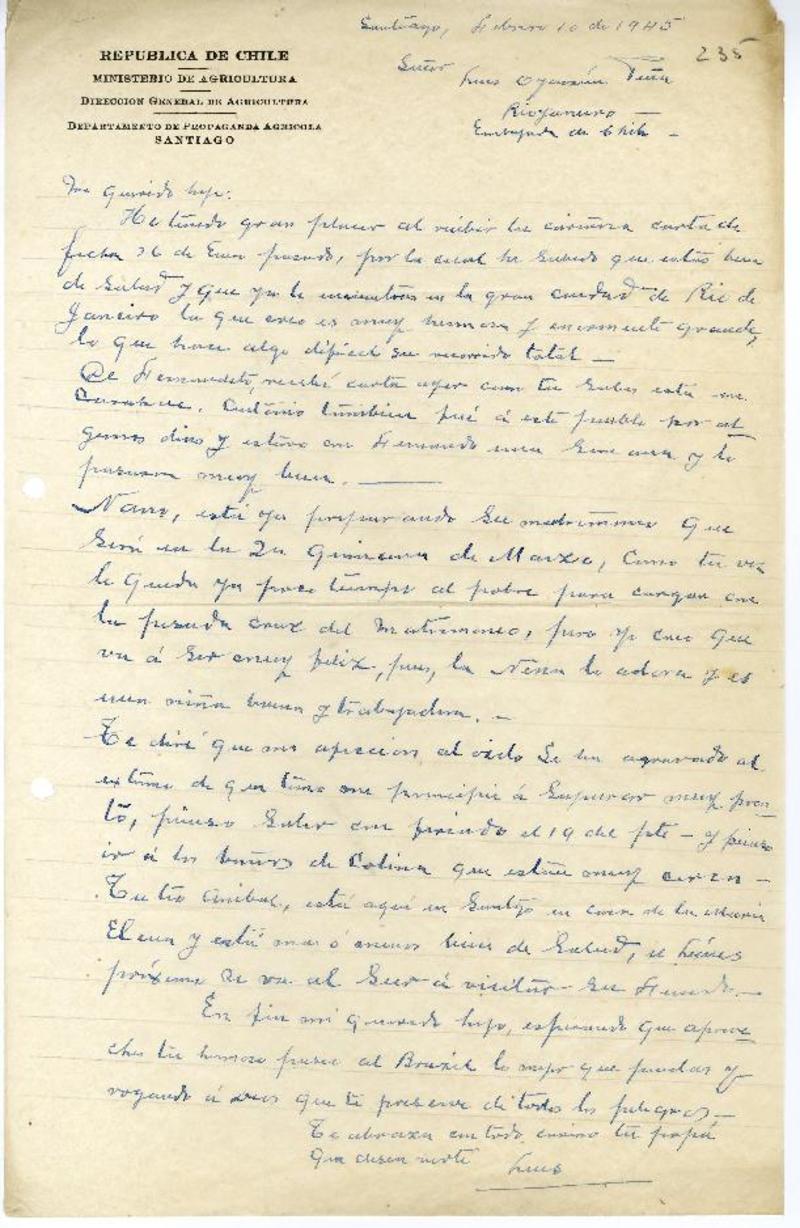 Santiago, Febrero 10 de 1945
235
REPUBLICA DE CHILE
MINISTERIO DE AGRICULTURA
DIRECCION GENERAL DE AGRICULTURA
DEPARTAMENTO DE PROPAGANDA AGRICOLA
SANTIAGO
Señor
Luis Oyarzún Peña
Riojaneiro —
Embajada de Chile —
Mi querido hijo:
He tenido gran placer al recibir tu cariñosa carta de
fecha 26 de Enero pasado, por la cual he sabido que estás bien
de salud y que ya te encuentras en la gran ciudad de Rio de
Janeiro la que creo es muy hermosa y enormemente grande,
lo que hace algo difícil su recorrido total —
De Fernandito, recibí carta ayer como tu sabes está en
Antonio también fué á este pueblo por al
gunos dias y estuvo con Fernando una semana y lo
pasaron muy bien. —
Nano, está ya preparando su matrimonio que
será en la 2a quincena de Marzo, como tu ves
le queda ya poco tiempo al pobre para cargar con
la pesada cruz del matrimonio, pero yo creo que
va á ser muy feliz, pues, la Nena lo adora y es
una niña buena y trabajadora. —
Te diré que mi afección al oido se ha agravado al
extremo de que temo me principie á supurar muy pron
to, pienso salir con feriado el 19 del pte — y pienso
ir á los baños de Colina que están muy cerca —
Tu tio Anibal, está aquí en Santgo en casa de la Maria
Elena y está mas ó menos bien de salud, el Lúnes
próximo se va al Sur á visitar su fundo. —
En fin mi querido hijo, esperando que aprove
ches tu hermoso paseo al Brazil lo mejor que puedas y
rogando á Dios que te preserve de todos los peligros —
Te abraza con todo cariño tu papá
que desea verte
Luis